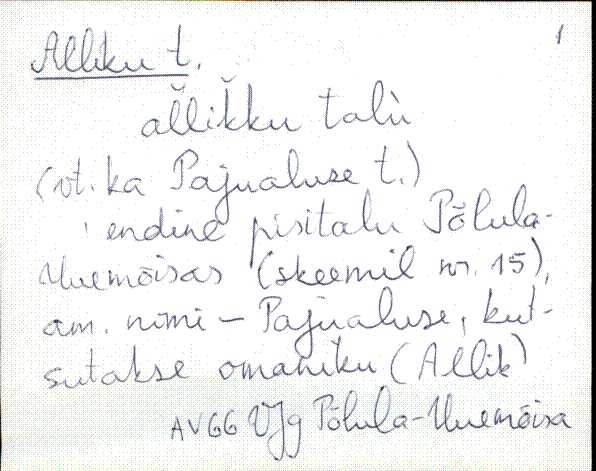 Alliku t.
1
al̆lik̆ku talù
(vt. ka Pajualuse t.)
endine pisitalu Põlula-
Uuemõisas (skeemil nr. 15),
am. nimi – Pajualuse, kut-
sutakse omaniku (Allik)
AV66 VJg Põlula-Uuemõisa